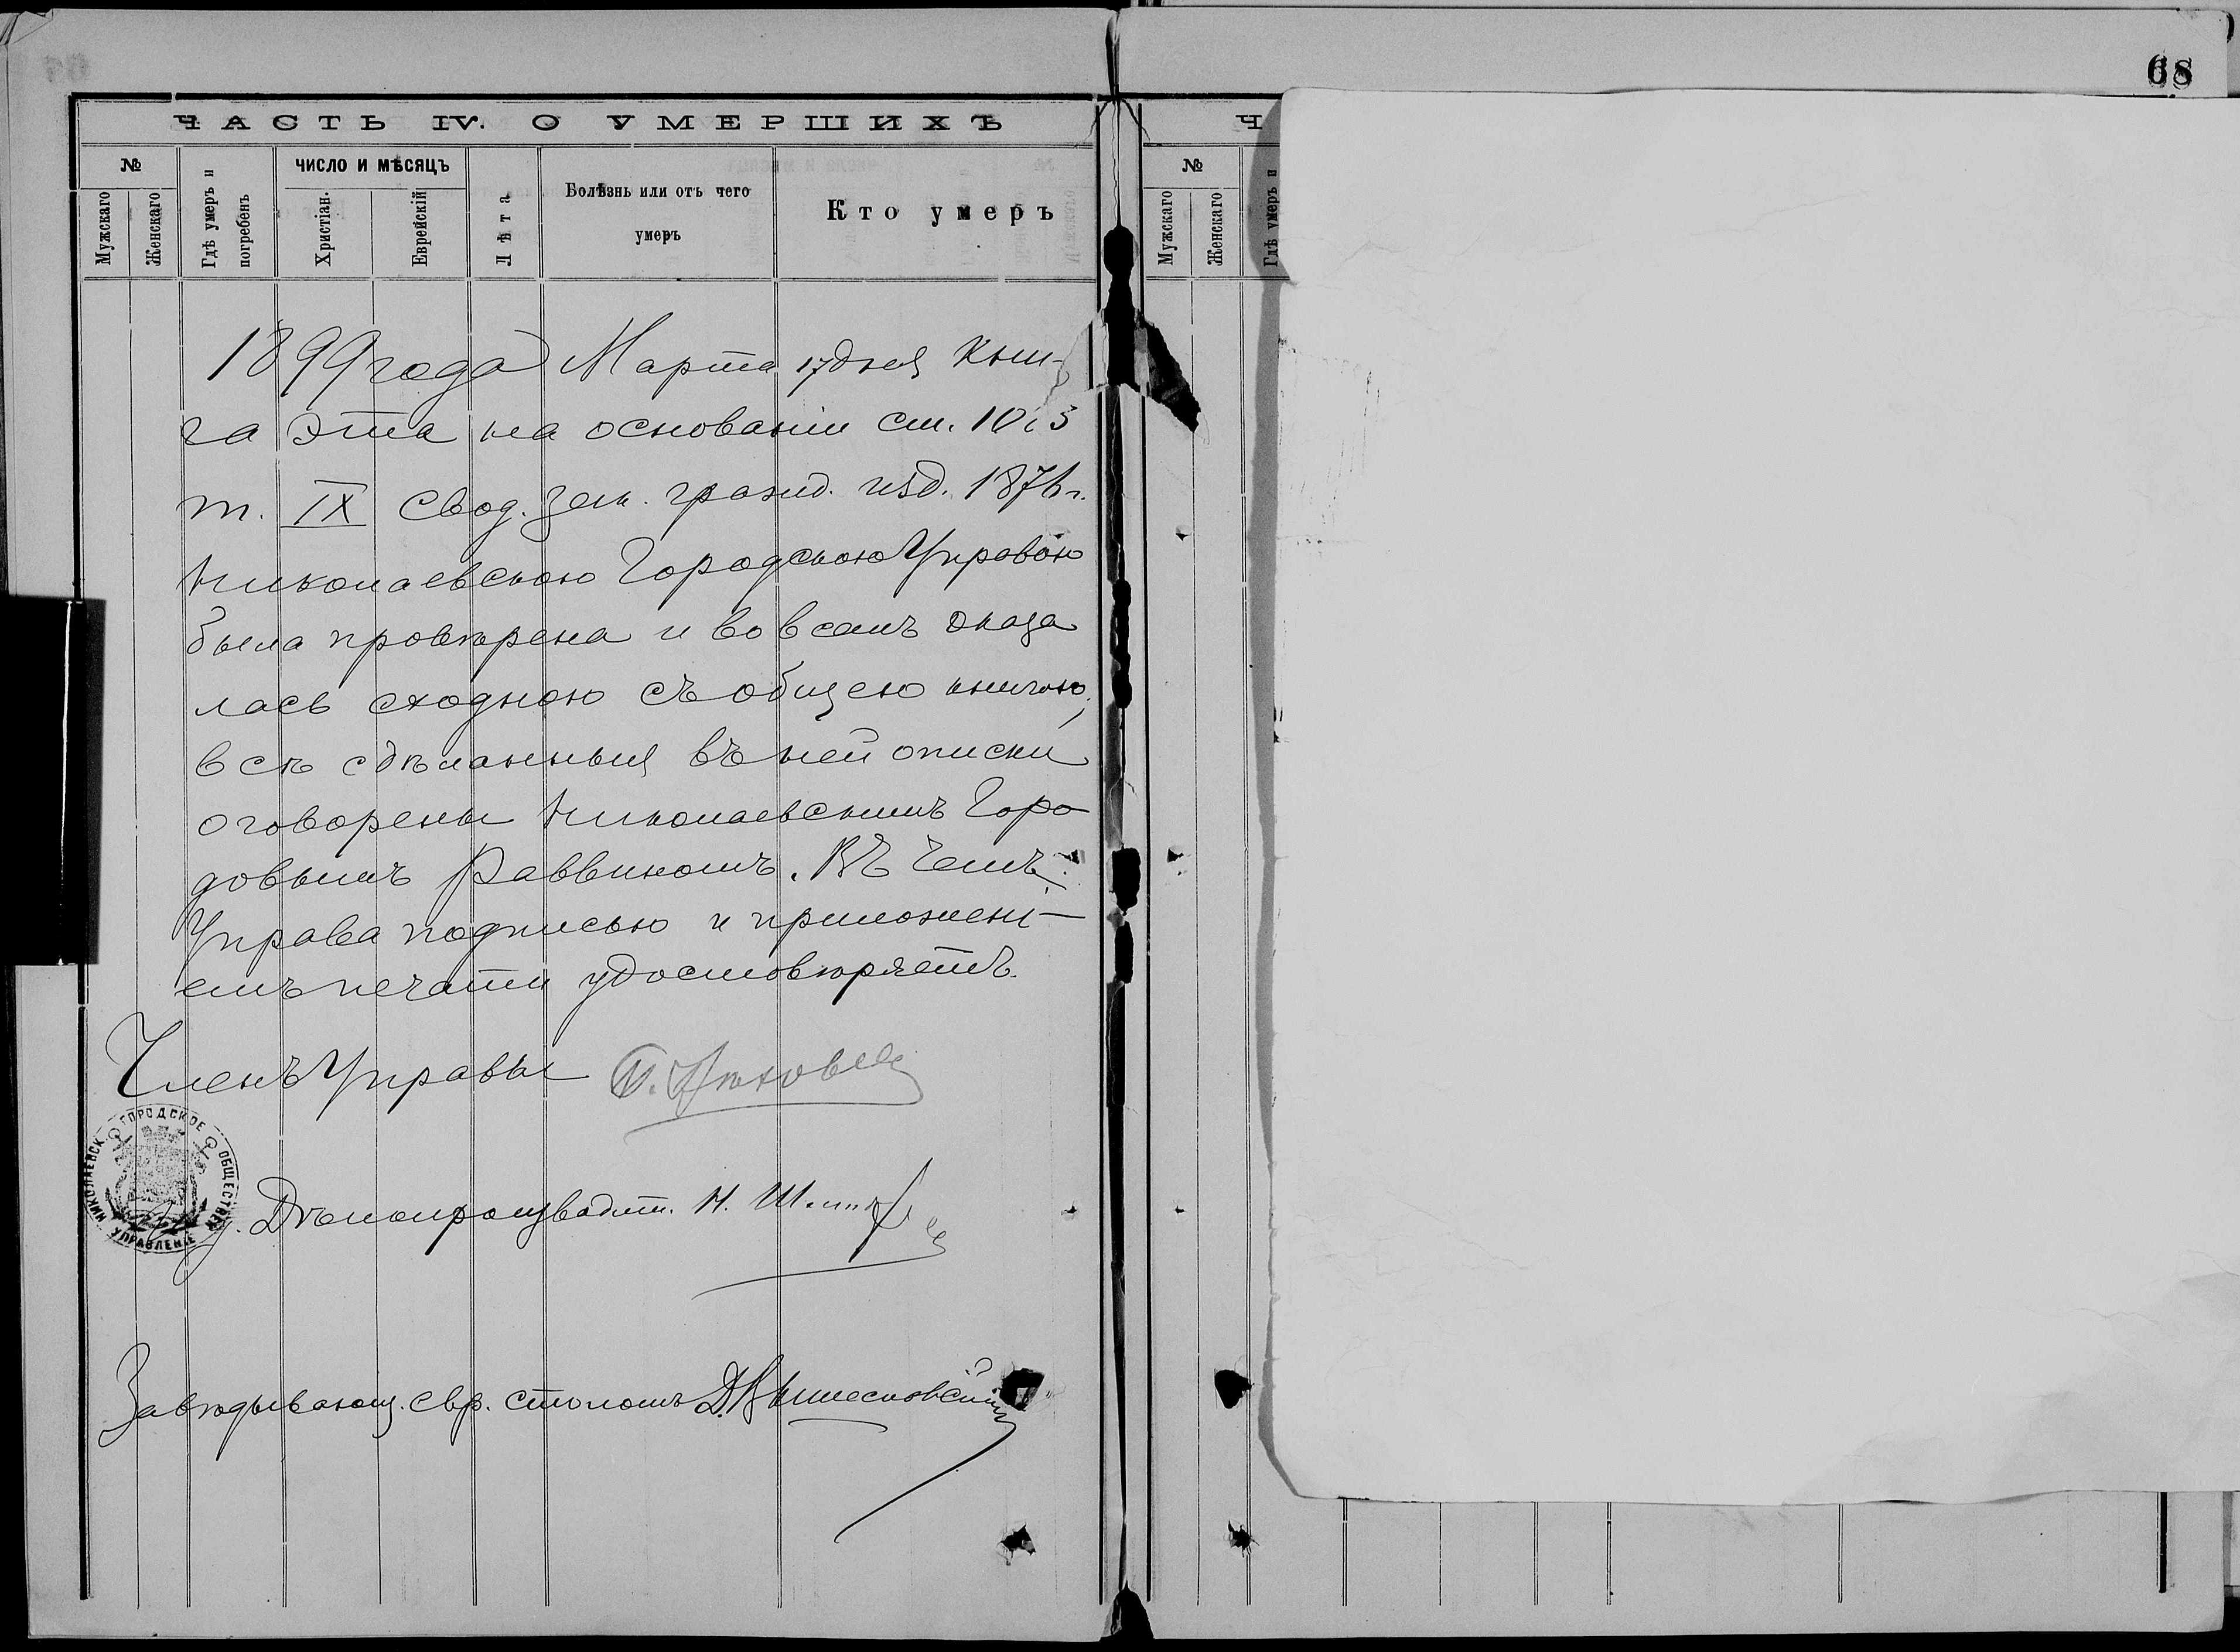 68
ЧАСТЬ IV. О УМЕРШИХЪ
№
Мужскаго
Женскаго
Гдѣ умеръ и погребенъ
ЧИСЛО И МѢСЯЦЪ
Христіан.
Еврейскій
Лѣта
Болѣзнь или отъ чего
умеръ
Кто умеръ
1899 года Марта 17 дня Кни-
га эта на основаніи ст.
т. IX Свод. Зак. гражд. изд. 1876 г.
Николаевскою Городскою Управою
была провѣрена и во всемъ оказа
лась сходною съ общею книгою,
всѣ сдѣланныя въ ней описки
оговорены Николаевскимъ Горо
довымъ Раввиномъ. Въ чемъ
Управа подписью и приложені-
емъ печати удостовѣряетъ.
Членъ Управы
НИКОЛАЕВСК. ГОРОДСКОЕ ОБЩЕСТВЕН. УПРАВЛЕНІЕ
Дѣлопроизводит. Н.
Завѣдывающ. евр. столомъ
Ч
№
Мужскаго
Женскаго
Гдѣ умеръ и